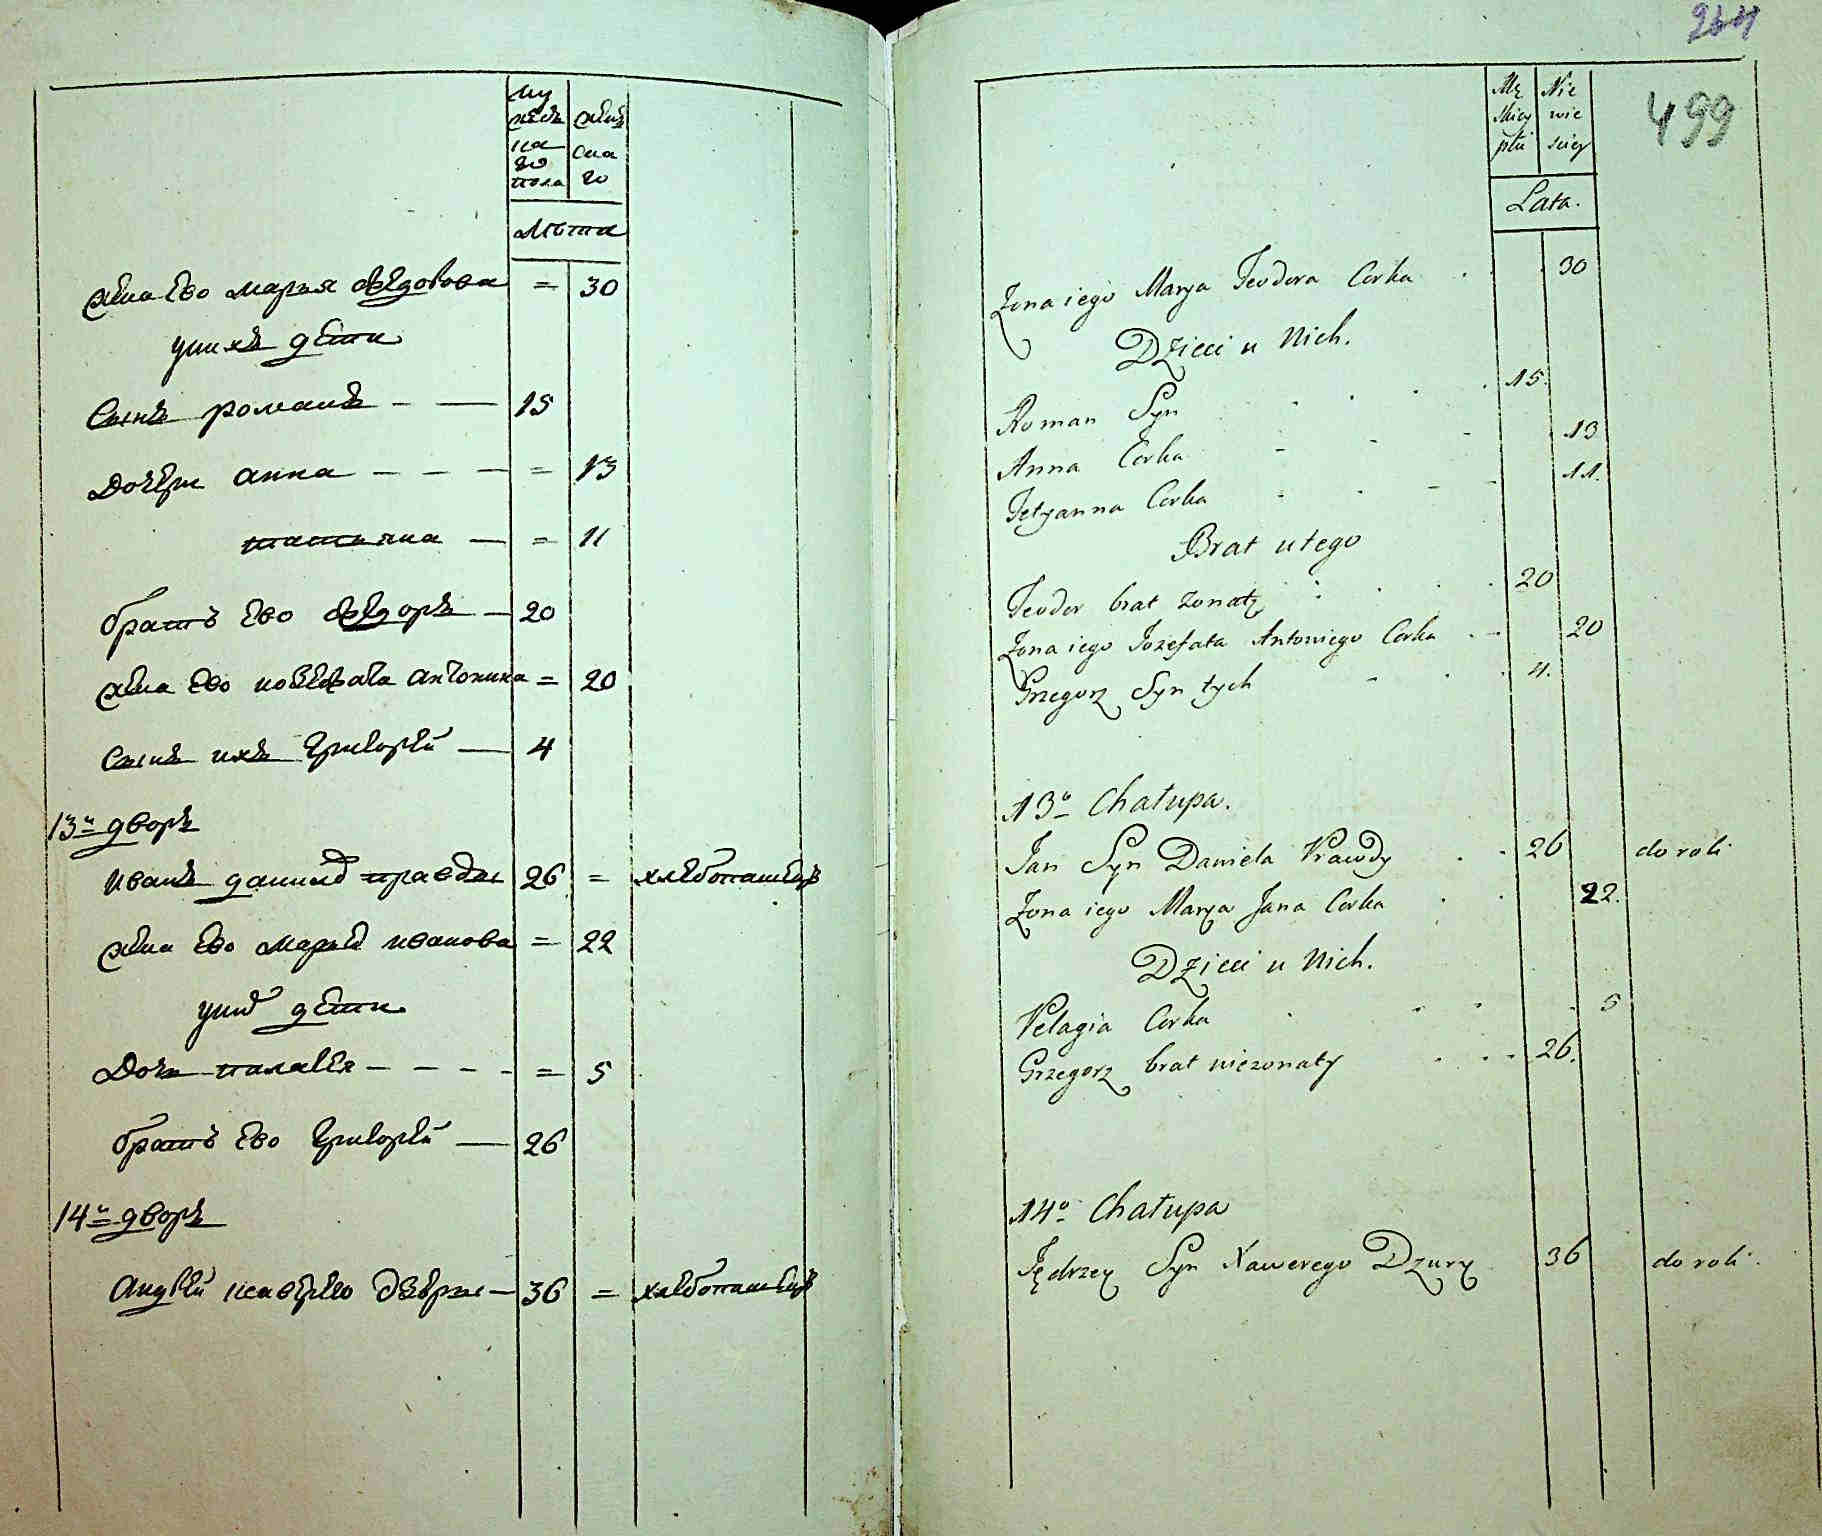 му
жеск
ка
го
пола
женс
ска
го
Лѣта
жена Ево марья ѳедорова = 30
унихъ дети
Сынъ романъ — — 15
Дочери анна — — — = 13
татьяна — = 11
братъ Ево ѳедоръ — 20
жена Ево иозефата антонина = 20
Сынъ ихъ Григорей — 4
13й дворъ
иванъ данил правды 26 = хлебопашецъ
жена Ево марья иванова = 22
уних дети
Дочь палагея — — — — = 5
братъ Ево Григорей — 26
14й дворъ
андрей ксаверего дзюры — 36 = хлебопашецъ
264
499
Mę
skiey
płci
Nie
wie
sciey
Lata.
Zona iego Marya Teodora Corka 30
Dzieci u Nich.
Roman Syn 15.
Anna Corka 13
Tetyanna Corka 11.
Brat u tego
Teodor brat zonaty 20
Zona iego Jozefata Antoniego Corka 20
Grzegorz Syn tych 4.
13o Chałupa.
Jan Syn Daniela Prawdy 26 do roli
Zona iego Marya Jana Corka 22.
Dzieci u Nich.
Pelagia Corka 5
Grzegorz brat niezonaty 26.
14o Chałupa
Jędrzey Syn Xawerego Dzury 36 do roli.